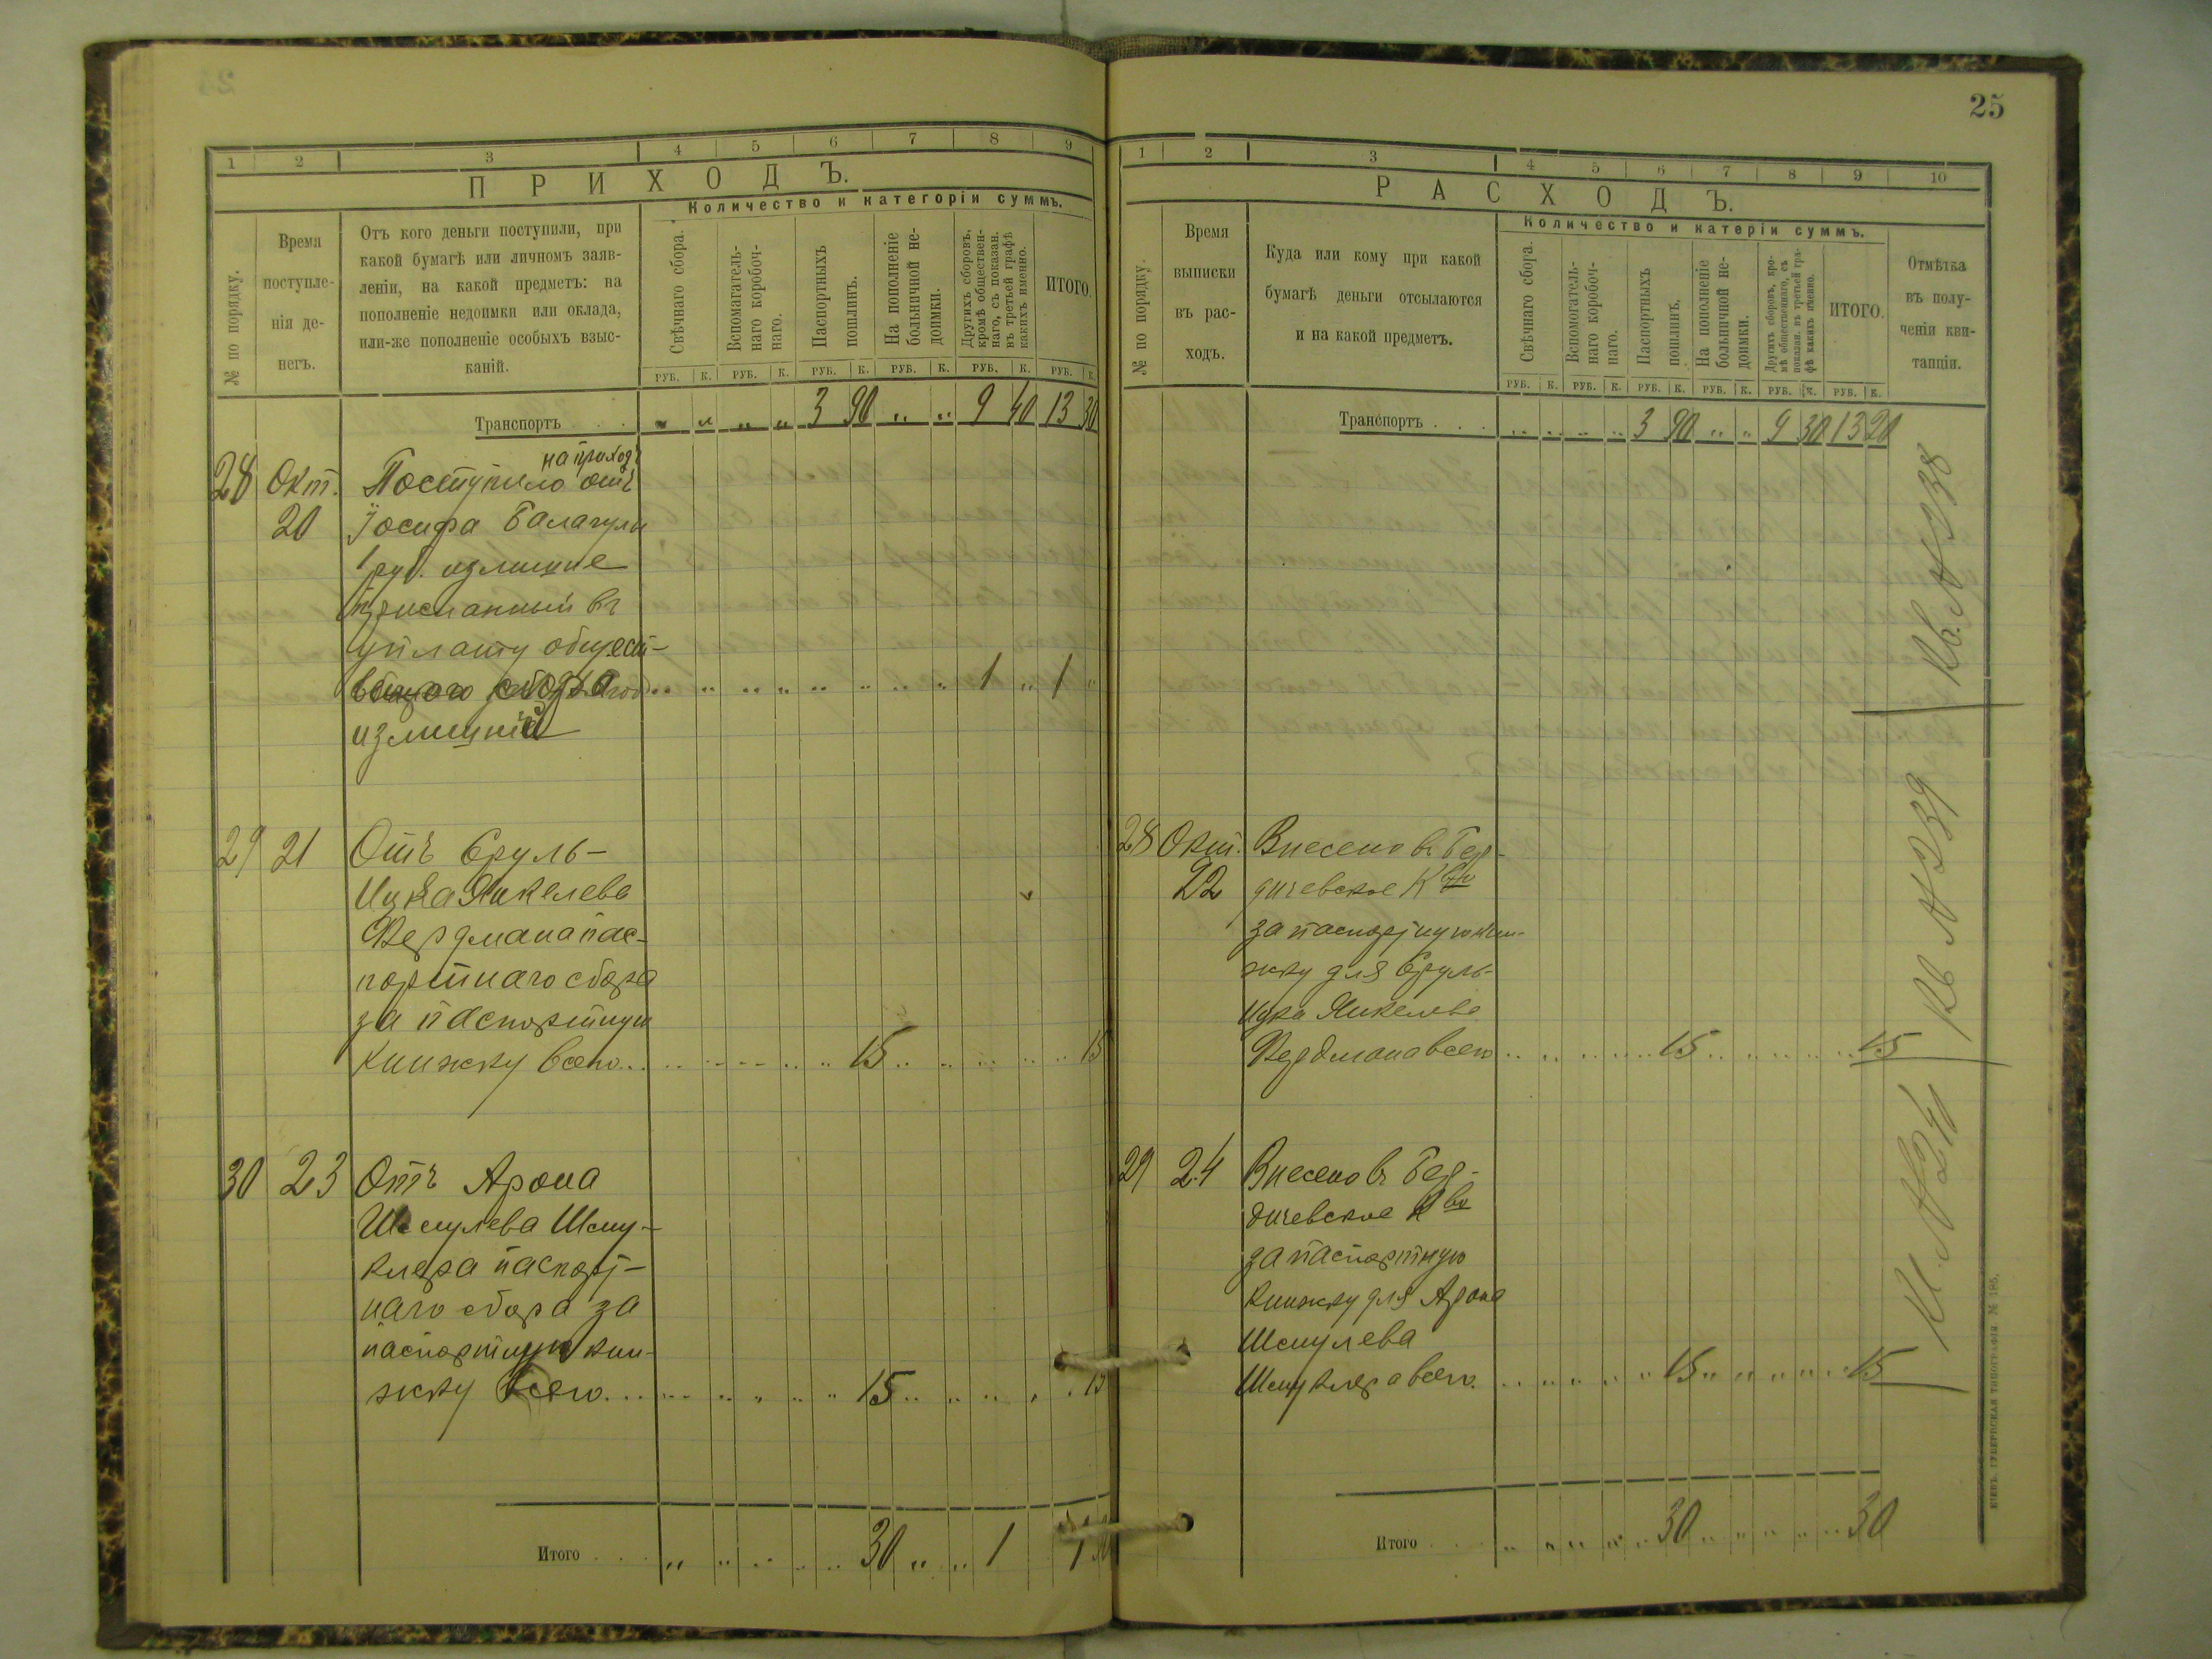 25
1 2 3 4 5 6 7 8 9
ПРИХОДЪ.
Количество и категоріи суммъ.
№ по порядку.
Время
поступле-
нія де-
негъ.
Отъ кого деньги поступили, при
какой бумагѣ или личномъ заяв-
леніи, на какой предметъ: на
пополненіе недоимки или оклада,
или-же пополненіе особыхъ взыс-
каній.
Свѣчнаго сбора.
Вспомагатель-
наго коробоч-
наго.
Паспортныхъ
пошлинъ.
На пополненіе
больничной не-
доимки.
Другихъ сборовъ,
кромѣ обществен-
наго, съ показан.
въ третьей графѣ
какихъ именно.
ИТОГО.
РУБ. К. РУБ. К. РУБ. К. РУБ. К. РУБ. К. РУБ. К.
Транспортъ . . . „ „ „ „ 3 90 „ „ 9 40 13 30
на приходъ
28 Окт. Поступило отъ
20 Іосифа Балагулы
1 руб. излишне
присланный въ
уплату общест-
1 „ 1 „
излишній
29 21 Отъ Сруль-
Ицка Янкелева
Фердмана пас-
портнаго сбора
за паспортную
книжку всего .. 15 15
30 23 Отъ Арона
Шмулева Шму-
клера паспорт-
наго сбора за
паспортную кни-
жку всего ... 15 15
Итого . . . „ „ 30 „ „ 1 1 30
1 2 3 4 5 6 7 8 9 10
РАСХОДЪ.
Количество и катеріи суммъ.
№ по порядку.
Время
выписки
въ рас-
ходъ.
Куда или кому при какой
бумагѣ деньги отсылаются
и на какой предметъ.
Свѣчнаго сбора.
Вспомогатель-
наго коробоч-
наго.
Паспортныхъ
пошлинъ.
На пополненіе
больничной не-
доимки.
Другихъ сборовъ, кро-
мѣ общественнаго, съ
показан. въ третьей гра-
фѣ какихъ именно.
ИТОГО.
Отмѣтка
въ полу-
ченіи кви-
танціи.
РУБ. К. РУБ. К. РУБ. К. РУБ. К. РУБ. К. РУБ. К.
Транспортъ . . . „ „ „ „ 3 90 „ „ 9 30 13 20
Кв. № 238
28 Окт. Внесено въ Бер-
22 дичевское К-во
за паспортную кни-
жку для Сруль-
Ицка Янкелева
Фердмана всего .. 15 15
Кв № 239
29 24 Внесено въ Бер-
дичевское К-во
за паспортную
книжку для Арона
Шмулева
Шмуклера всего. 15 15
№ 241
Итого . . . 30 30
КІЕВЪ. ГУБЕРНСКАЯ ТИПОГРАФІЯ. № 185.